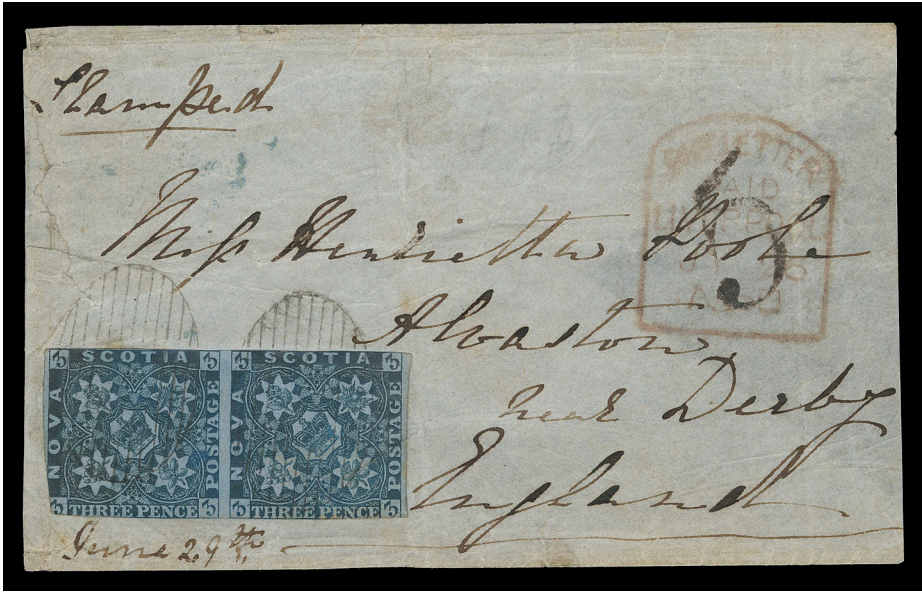 Stamped
SHIP LETTER
PAID
LIVERPOOL
5
Miss Henrietta Poole
Alvaston
near Derby
England
NOVA SCOTIA POSTAGE THREE PENCE 3 3 3 3
NOVA SCOTIA POSTAGE THREE PENCE 3 3 3 3
June 29th